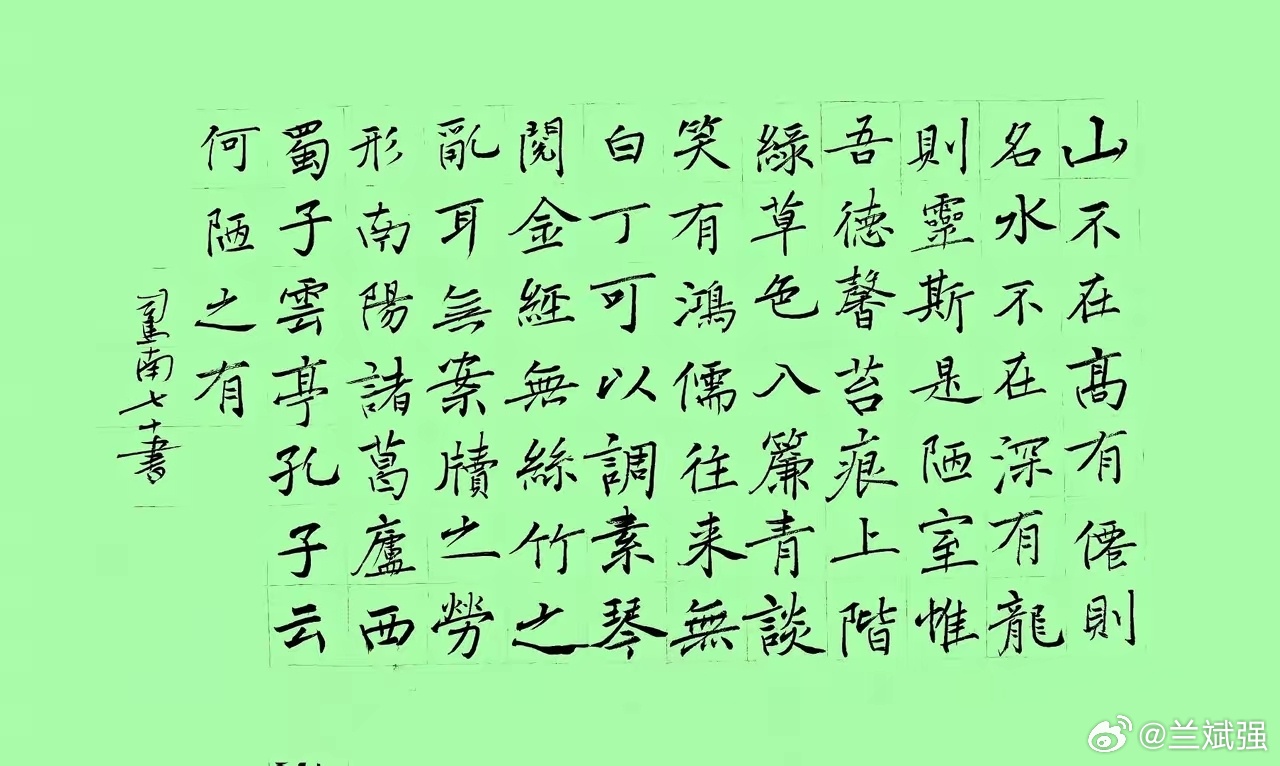 山不在高有僊則
名水不在深有龍
則靈斯是陋室惟
吾德馨苔痕上階
綠草色入簾青談
笑有鴻儒往来無
白丁可以調素琴
閱金經無絲竹之
亂耳無案牘之勞
形南陽諸葛廬西
蜀子雲亭孔子云
何陋之有
南七十書
@兰斌强